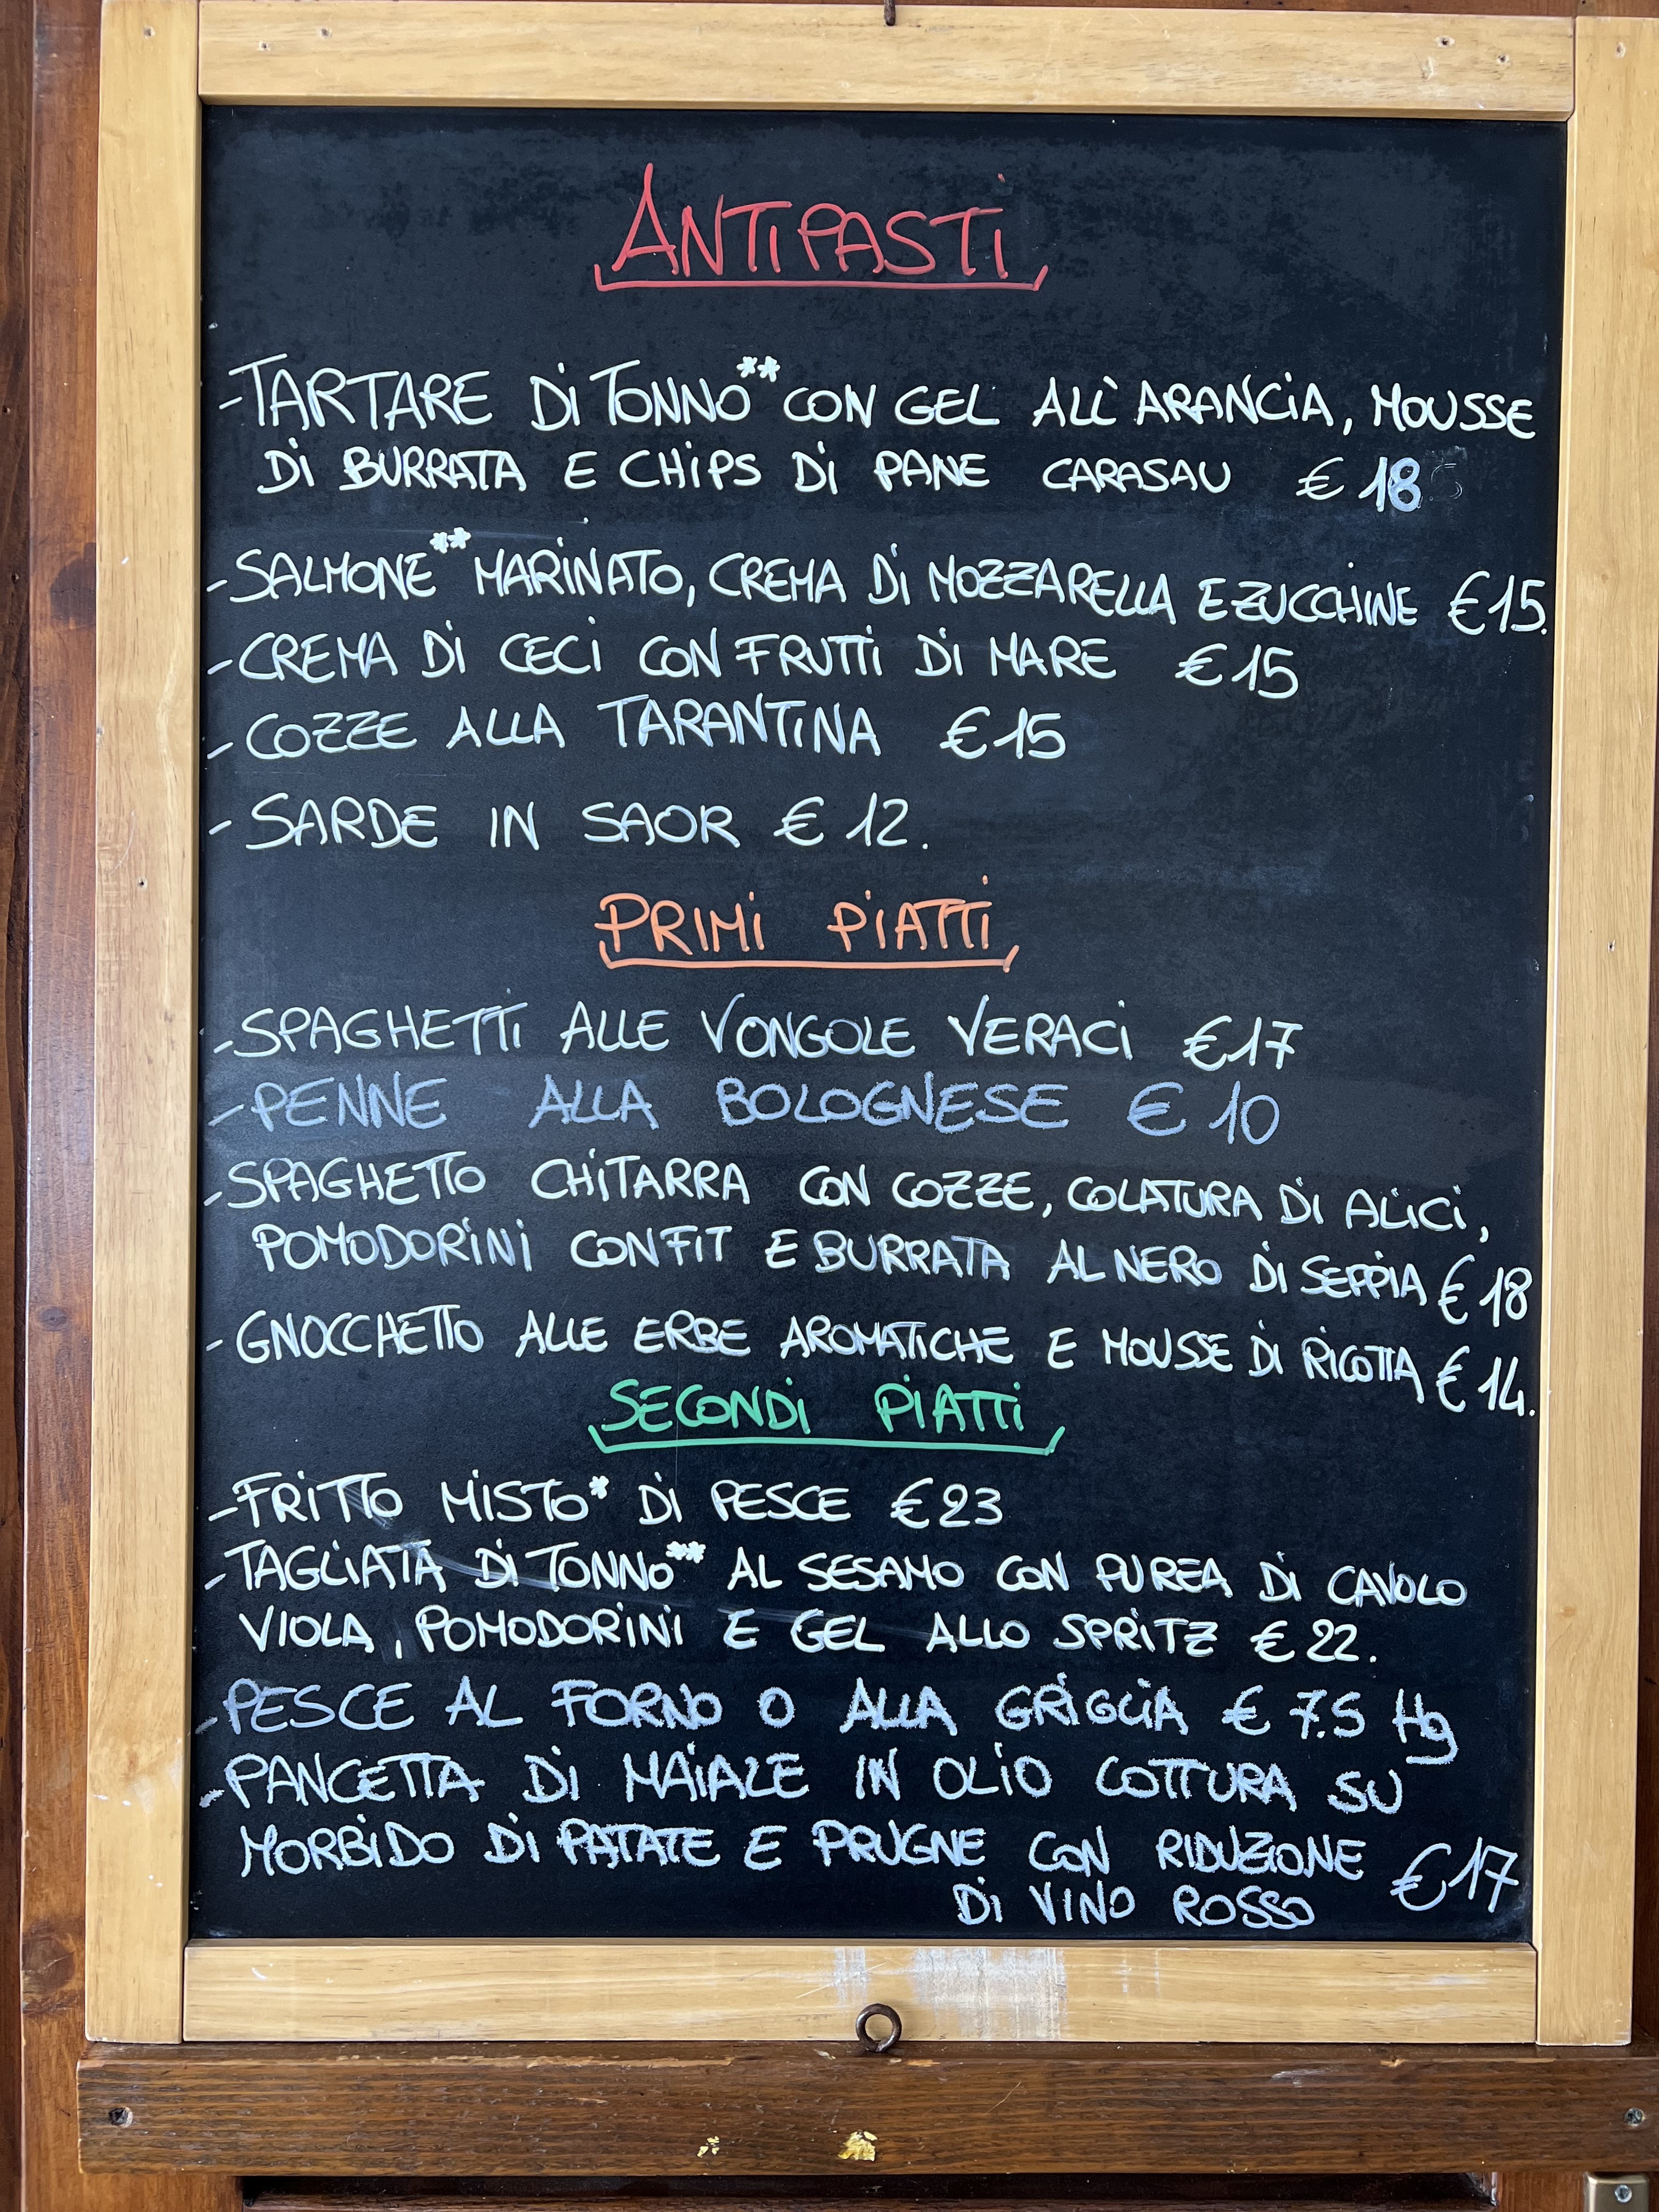 ANTIPASTI
-TARTARE DI TONNO** CON GEL ALL'ARANCIA, MOUSSE
DI BURRATA E CHIPS DI PANE CARASAU € 18
-SALMONE** MARINATO, CREMA DI MOZZARELLA E ZUCCHINE €15.
-CREMA DI CECI CON FRUTTI DI MARE €15
-COZZE ALLA TARANTINA €15
-SARDE IN SAOR € 12.
PRIMI PIATTI
-SPAGHETTI ALLE VONGOLE VERACI €17
-PENNE ALLA BOLOGNESE € 10
-SPAGHETTO CHITARRA CON COZZE, COLATURA DI ALICI,
POMODORINI CONFIT E BURRATA AL NERO DI SEPPIA € 18
-GNOCCHETTO ALLE ERBE AROMATICHE E MOUSSE DI RICOTTA € 14.
SECONDI PIATTI
-FRITTO MISTO* DI PESCE €23
-TAGLIATA DI TONNO** AL SESAMO CON PUREA DI CAVOLO
VIOLA, POMODORINI E GEL ALLO SPRITZ € 22.
-PESCE AL FORNO O ALLA GRIGLIA € 7.5 Hg
-PANCETTA DI MAIALE IN OLIO COTTURA SU
MORBIDO DI PATATE E PRUGNE CON RIDUZIONE €17
DI VINO ROSSO